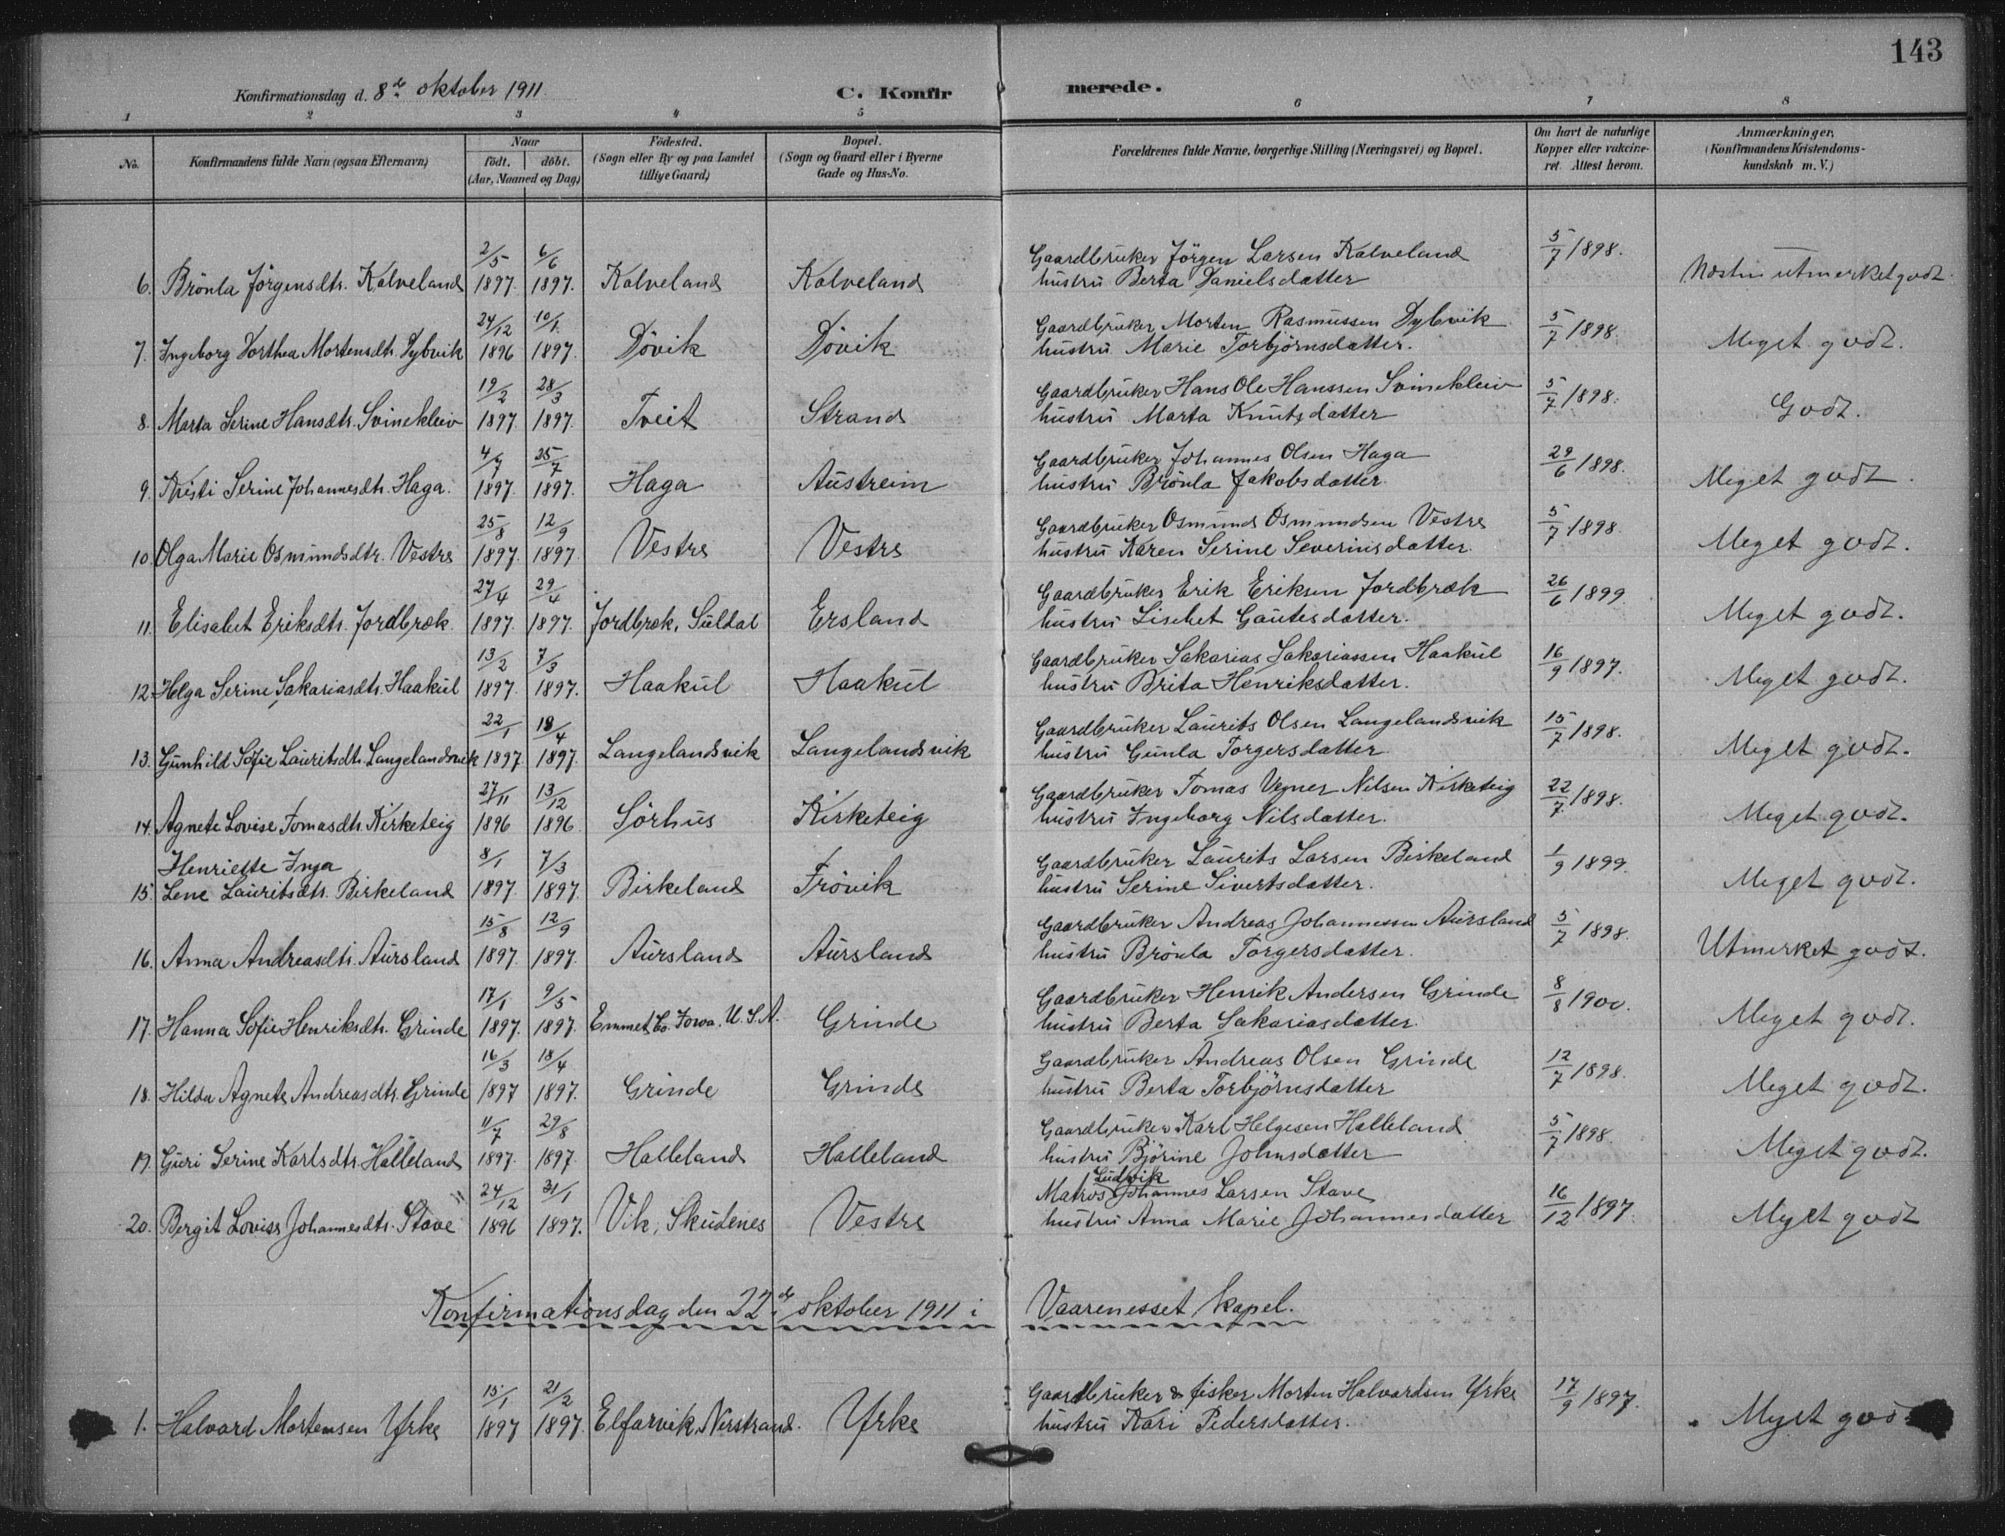 143
Konfirmationsdag d. 8de oktober 1911.
C. Konfirmerede.
1 2 3 4 5 6 7 8
No. Konfirmandens fulde Navn (ogsaa Efternavn) Naar født. døbt. (Aar, Maaned og Dag) Fødested. (Sogn eller By og paa Landet tillige Gaard) Bopæl. (Sogn og Gaard eller i Byerne Gade og Hus-No. Forældrenes fulde Navne, borgerlige Stilling (Næringsvei) og Bopæl. Om havt de naturlige Kopper eller vakcineret. Attest herom. Anmærkninger. (Konfirmandens Kristendomskundskab m. V.)
2/5 6/6 Gaardbruker Jørgen Larsen Kalveland 5/7 1898.
6. Brønla Jørgensdtr. Kalveland 1897. 1897. Kalveland Kalveland hustru Berta Danielsdatter Næsten utmerket godt.
24/12 10/1. Gaardbruker Morten Rasmussen Dybvik 5/7 1898.
7. Ingeborg Dorthea Mortensdtr. Dybvik 1896 1897. Døvik Døvik hustru Marie Torbjørnsdatter. Meget godt.
19/2 28/3 Gaardbruker Hans Ole Hanssen Svinekleiv 5/7 1898.
8. Marta Serine Hansdtr. Svinekleiv 1897. 1897. Tveit Strand hustru Marta Knutsdatter Godt.
4/7 25/7 Gaardbruker Johannes Olsen Haga 29/6 1898.
9. Kristi Serine Johannesdtr. Haga. 1897. 1897. Haga Austreim hustru Brønla Jakobsdatter. Meget godt.
25/8 12/9 Gaardbruker Osmund Osmundsen Vestre 5/7 1898.
10. Olga Marie Osmundsdtr. Vestre 1897. 1897. Vestre Vestre hustru Karen Serine Severinsdatter. Meget godt.
27/4 29/4 Gaardbruker Erik Eriksen Jordbræk 26/6 1899.
11. Elisabet Eriksdtr. Jordbræk. 1897. 1897. Jordbræk, Suldal Ersland hustru Lisebet Gautesdatter. Meget godt.
13/2 7/3 Gaardbruker Sakarias Sakariassen Haakul 16/9 1897.
12. Helga Serine Sakariasdtr. Haakul 1897. 1897. Haakul Haakul hustru Brita Henriksdatter. Meget godt.
22/1 18/4 Gaardbruker Laurits Olsen Langelandsvik 15/7 1898.
13. Gunhild Sofie Lauritsdtr. Langelandsvik 1897 1897. Langelandsvik Langelandsvik hustru Gunla Torgersdatter. Meget godt.
27/11 13/12 Gaardbruker Tomas Vegner Nilsen Kirketeig 22/7 1898.
14. Agnete Lovise Tomasdtr. Kirketeig 1896 1896. Sørhus Kirketeig hustru Ingeborg Nilsdatter. Meget godt.
Henriette Inga 8/1 7/3 Gaardbruker Laurits Larsen Birkeland 1/9 1899.
15. Lene Lauritsdtr. Birkeland 1897. 1897. Birkeland Frøvik hustru Serine Sivertsdatter. Meget godt.
15/8 12/9 Gaardbruker Andreas Johannessen Aursland 5/7 1898.
16. Anna Andreasdtr. Aursland 1897. 1897. Aursland Aursland hustru Brønla Torgersdatter. Utmerket godt.
17/1 9/5 Gaardbruker Henrik Andersen Grinde 8/8 1900.
17. Hanna Sofie Henriksdtr. Grinde 1897. 1897. Emmet Co. Iowa. U.S.A. Grinde hustru Berta Sakariasdatter. Meget godt.
16/3 18/4 Gaardbruker Andreas Olsen Grinde 12/7 1898.
18. Hilda Agnete Andreasdtr. Grinde 1897 1897. Grinde Grinde hustru Berta Torbjørnsdatter Meget godt.
11/7 29/8 Gaardbruker Karl Helgesen Halleland 5/7 1898.
19. Guri Serine Karlsdtr. Halleland 1897. 1897. Halleland Halleland hustru Bjørine Johnsdatter Meget godt.
Ludvik
24/12 31/1 Matros Johannes Larsen Stave 16/12 1897.
20. Bergit Lovise Johannesdtr. Stave 1896 1897. Vik, Skudenes Vestre hustru Anna Marie Johannesdatter Meget godt
Konfirmationsdag den 22de oktober 1911 i Vaarenesset kapel.
15/1 21/2 Gaardbruker & fisker Morten Halvardsen Yrke 17/9 1897.
1. Halvard Mortensen Yrke 1897 1897. Elfarvik, Nerstrand. Yrke hustru Kari Pedersdatter. Meget god